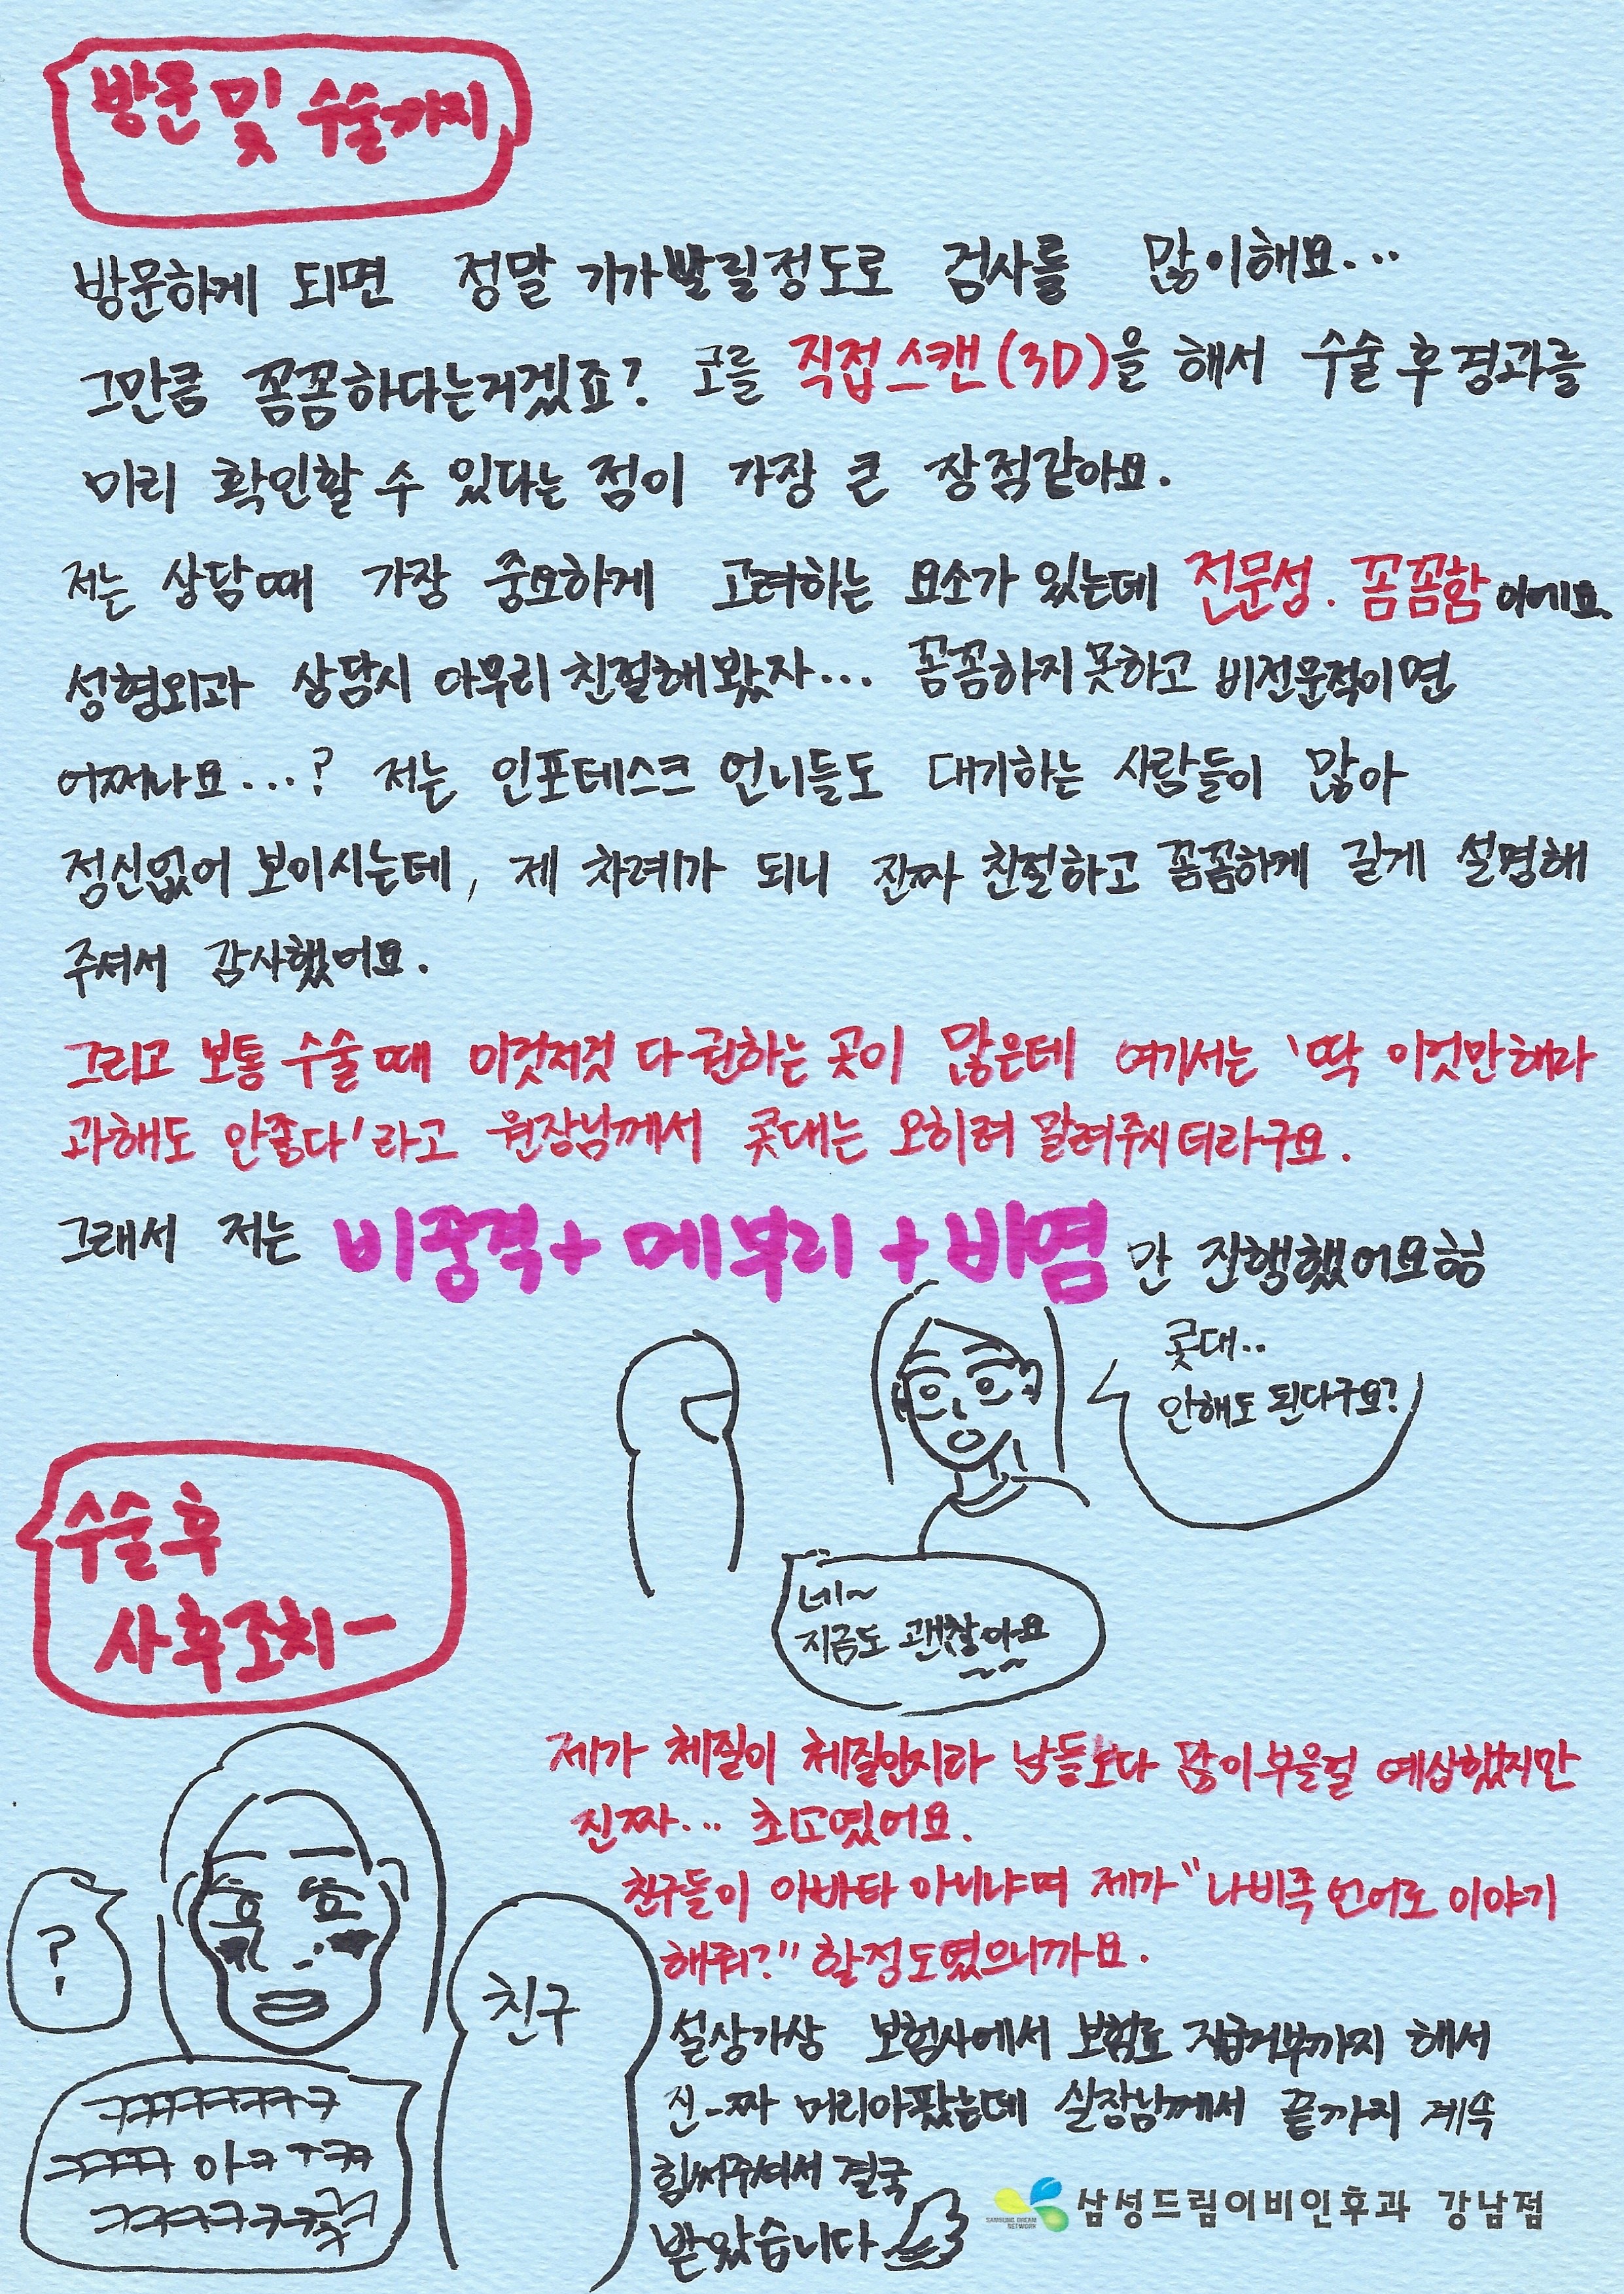 방문 및 수술까지
방문하게 되면 정말 기가빨릴정도로 검사를 많이해요...
그만큼 꼼꼼하다는거겠죠? 코를 직접 스캔(3D)을 해서 수술 후 경과를
미리 확인할 수 있다는 점이 가장 큰 장점같아요.
저는 상담때 가장 중요하게 고려하는 요소가 있는데 전문성. 꼼꼼함이에요.
성형외과 상담시 아무리 친절해봤자... 꼼꼼하지못하고 비전문적이면
어쩌나요...? 저는 인포데스크 언니들도 대기하는 사람들이 많아
정신없어 보이시는데, 제 차례가 되니 진짜 친절하고 꼼꼼하게 길게 설명해
주셔서 감사했어요.
그리고 보통 수술때 이것저것 다 권하는 곳이 많은데 여기서는 '딱 이것만해라
과해도 안좋다'라고 원장님께서 콧대는 오히려 말려주시더라구요.
그래서 저는 비중격+메부리+비염만 진행했어요ㅎㅎ
콧대..
안해도 된다구요?
네~
지금도 괜찮아요
수술 후
사후조치-
제가 체질이 체질인지라 남들보다 많이부을걸 예상했지만
진짜... 최고였어요.
친구들이 아바타 아니냐며 제가 "나비족 언어로 이야기
해줘?" 할정도였으니까요.
?
친구
설상가상 보험사에서 보험료 지급거부까지 해서
진-짜 머리아팠는데 실장님께서 끝까지 계속
힘써주셔서 결국
받았습니다
ㅋㅋㅋㅋㅋㅋㅋ
삼성드림이비인후과 강남점
SAMSUNG DREAM
NETWORK